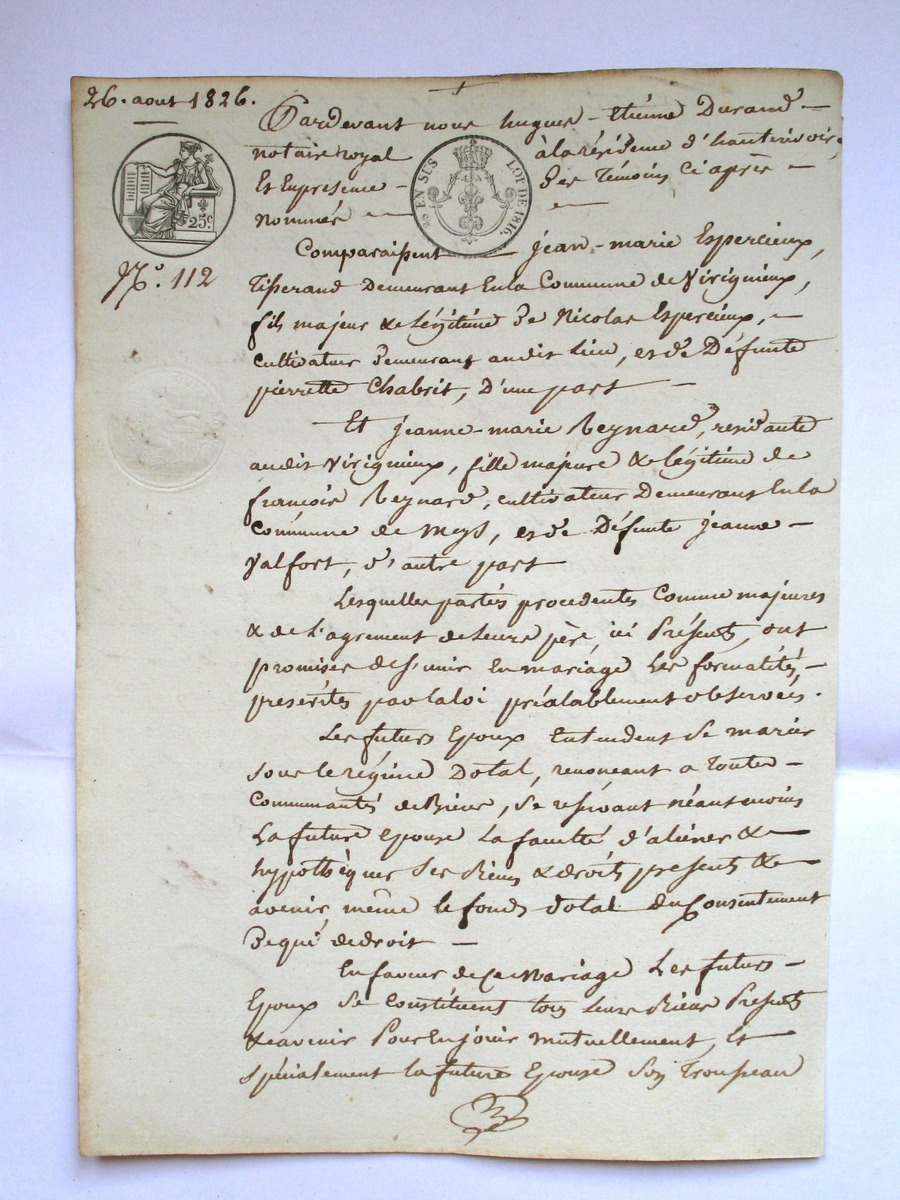 26. aout 1826.
Pardevant nous hugues-Etienne Durand
notaire royal à la résidence d'hauterivoire
Et En presence des Témoins Ci après
nommés
25c.
25 EN SUS LOI DE 1816.
No. 112
Comparaissent Jean-marie Espercieux,
Tisserand Demeurant En la Commune de Virignieux,
fils majeur & Légitime De Nicolas Espercieux,
cultivateur Demeurant audit Lieu, et de Défunte
pierrette Chabrit, D'une part
Et Jeanne-marie Reynard, residante
audit Virignieux, fille majeure & Légitime de
françois Reynard, cultivateur Demeurant En la
Commune de Meys, et de Défunte Jeanne
Valfort, d'autre part
Lesquelles parties procedentes Comme majeures
& de L'agrement de Leurs père, ici Présents, ont
promises de S'unir En mariage Les formalités
prescrites par la loi préalablement observées.
Les futurs Epoux Entendent Se marier
Sous le régime Dotal, renonçant a Toutes
Communautés de Biens, Se réservant néantmoins
La future Epouse La faculté d'aliéner &
hypothèquer Ses Biens & droits présents &
avenir, même le fonds dotal du Consentement
De qui de droit
En faveur de Ce Mariage Les futurs
Epoux Se Constituent tous Leurs Biens Présents
& avenir Pour En jouir mutuellement, Et
spécialement la future Epouse Son Trousseau